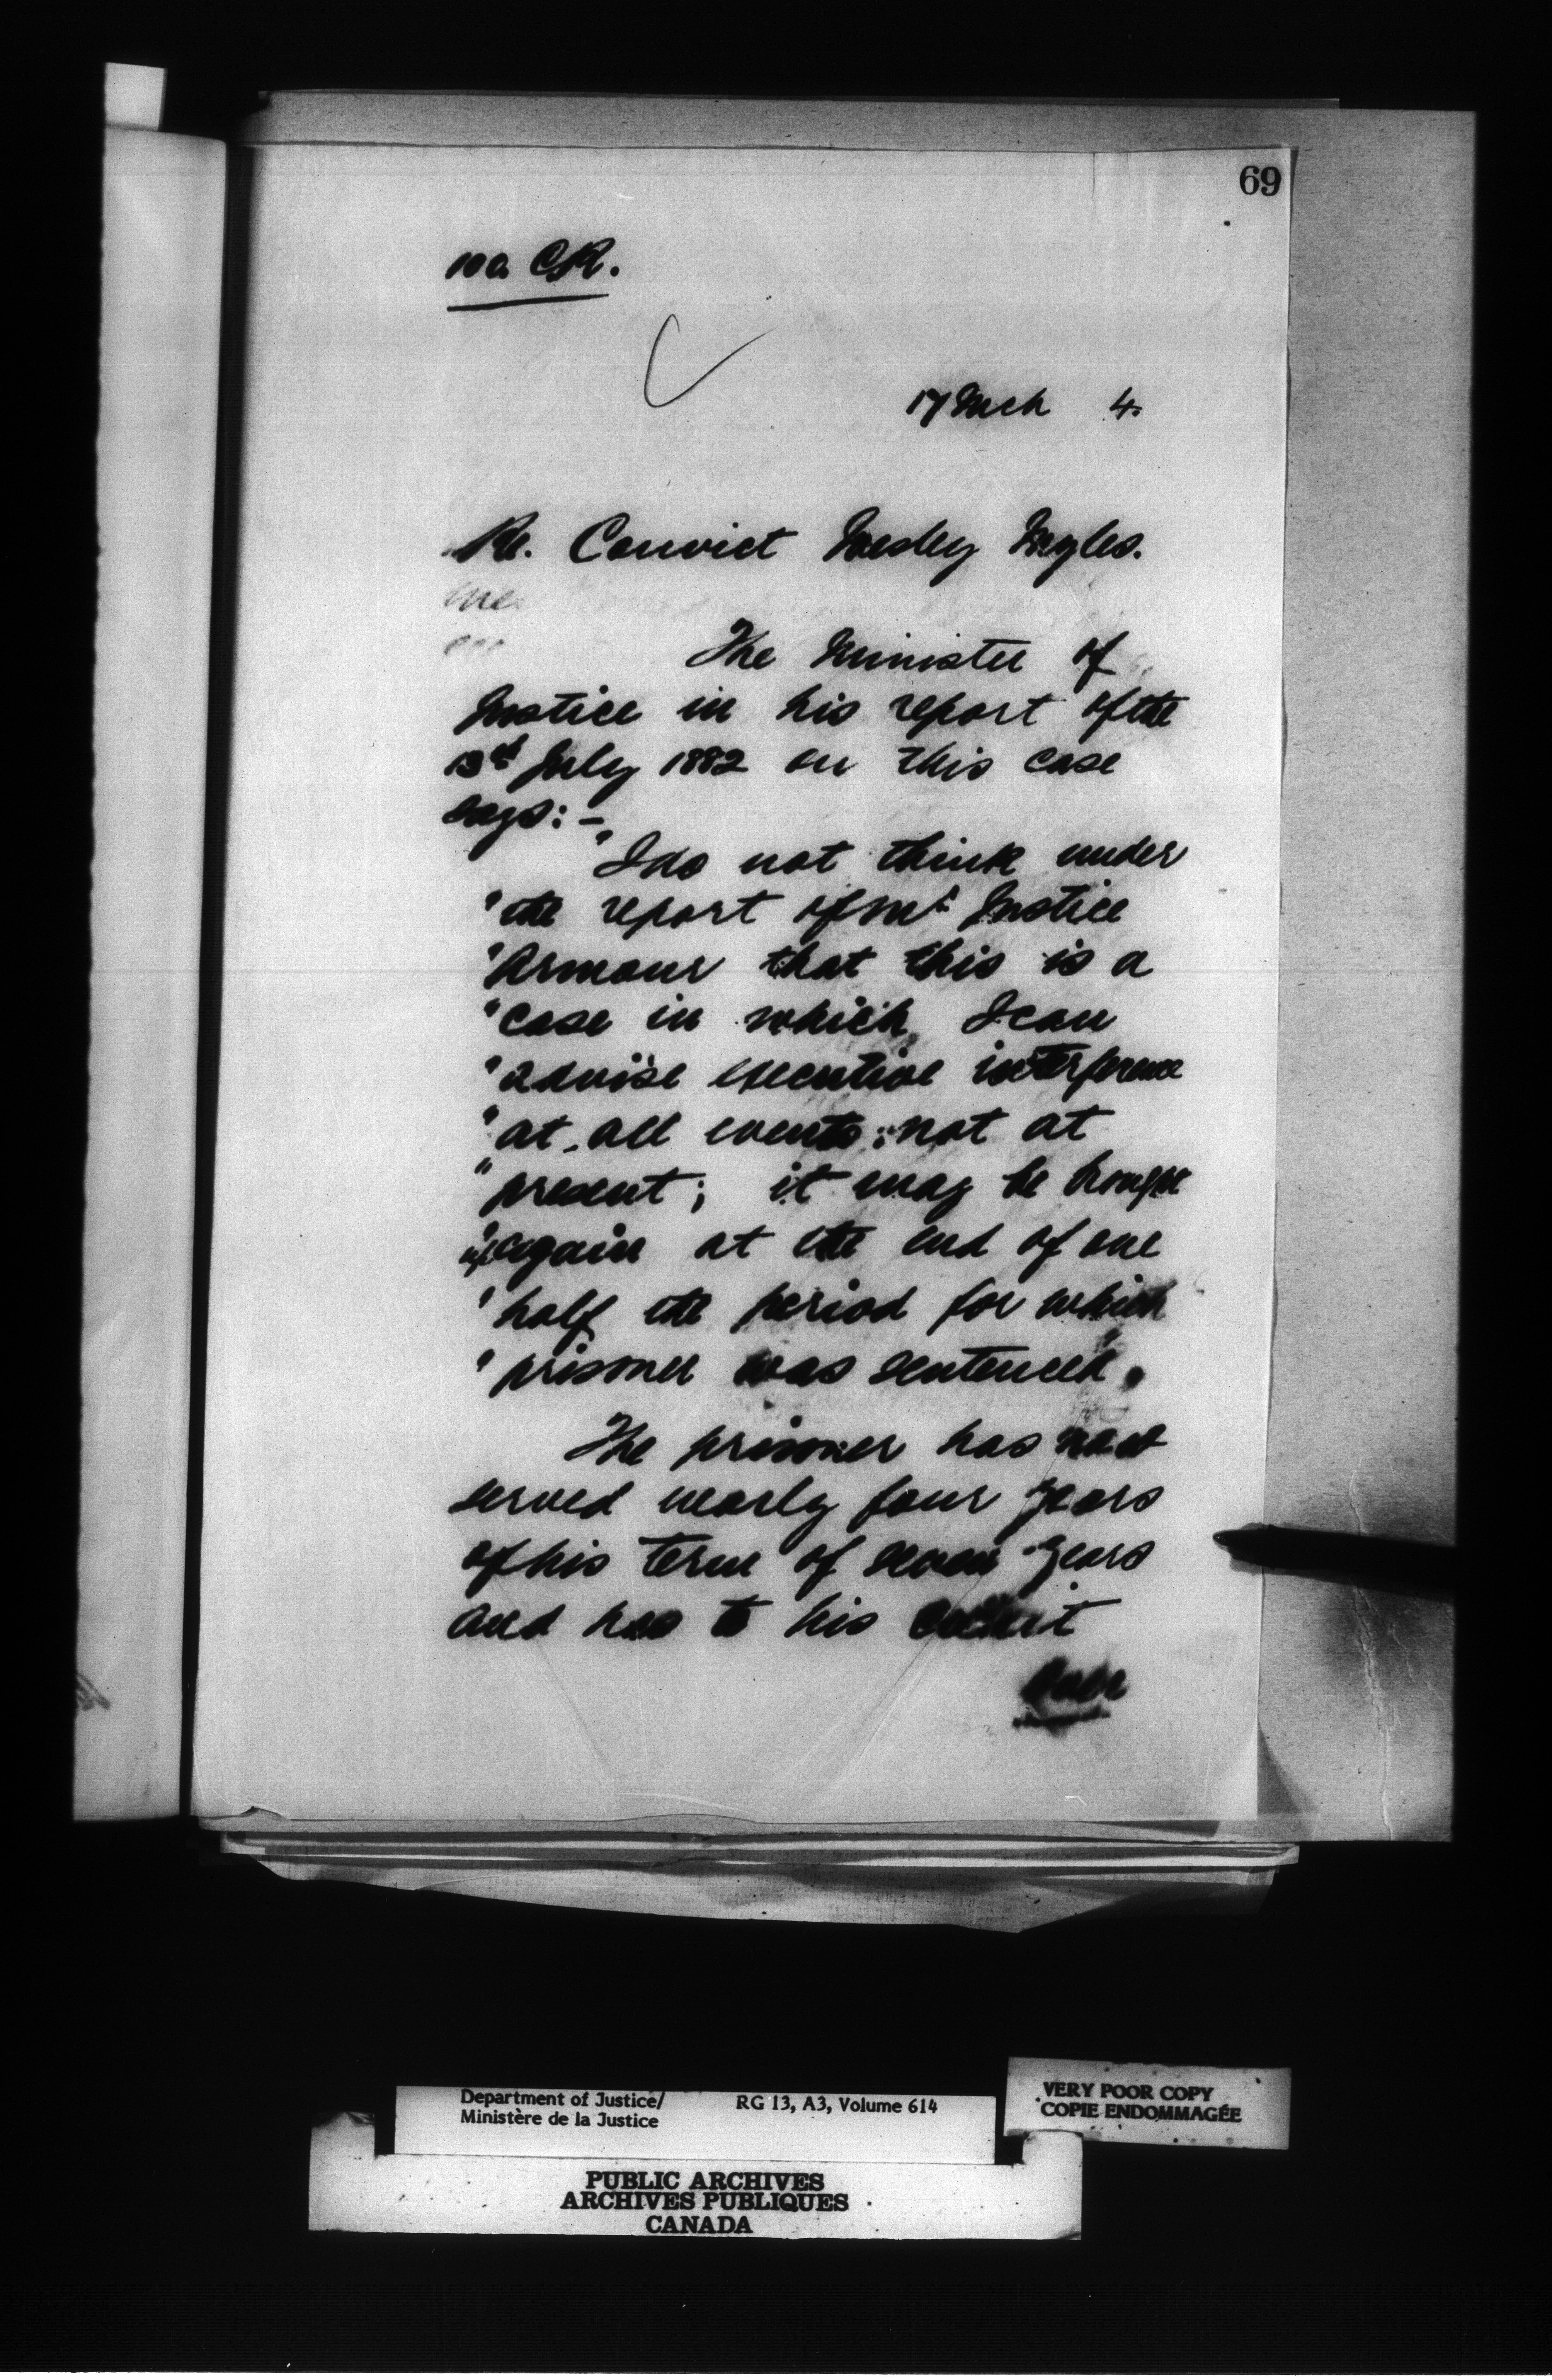 69
100 CR.
17 Mch 4.
Re. Convict Wesley Myles.
The Minister of
Justice in his report of the
13th July 1882 on this case
says:-
"I do not think under
"the report of Mr. Justice
"Armour that this is a
"case in which I can
"advise executive interference
"at all events not at
"present; it may be brought
"up again at the end of one
"half the period for which
"prisoner was sentenced".
The prisoner has now
served nearly four years
of his term of seven years
and has to his credit
Over
Department of Justice/
Ministère de la Justice
RG 13, A3, Volume 614
VERY POOR COPY
COPIE ENDOMMAGÉE
PUBLIC ARCHIVES
ARCHIVES PUBLIQUES
CANADA